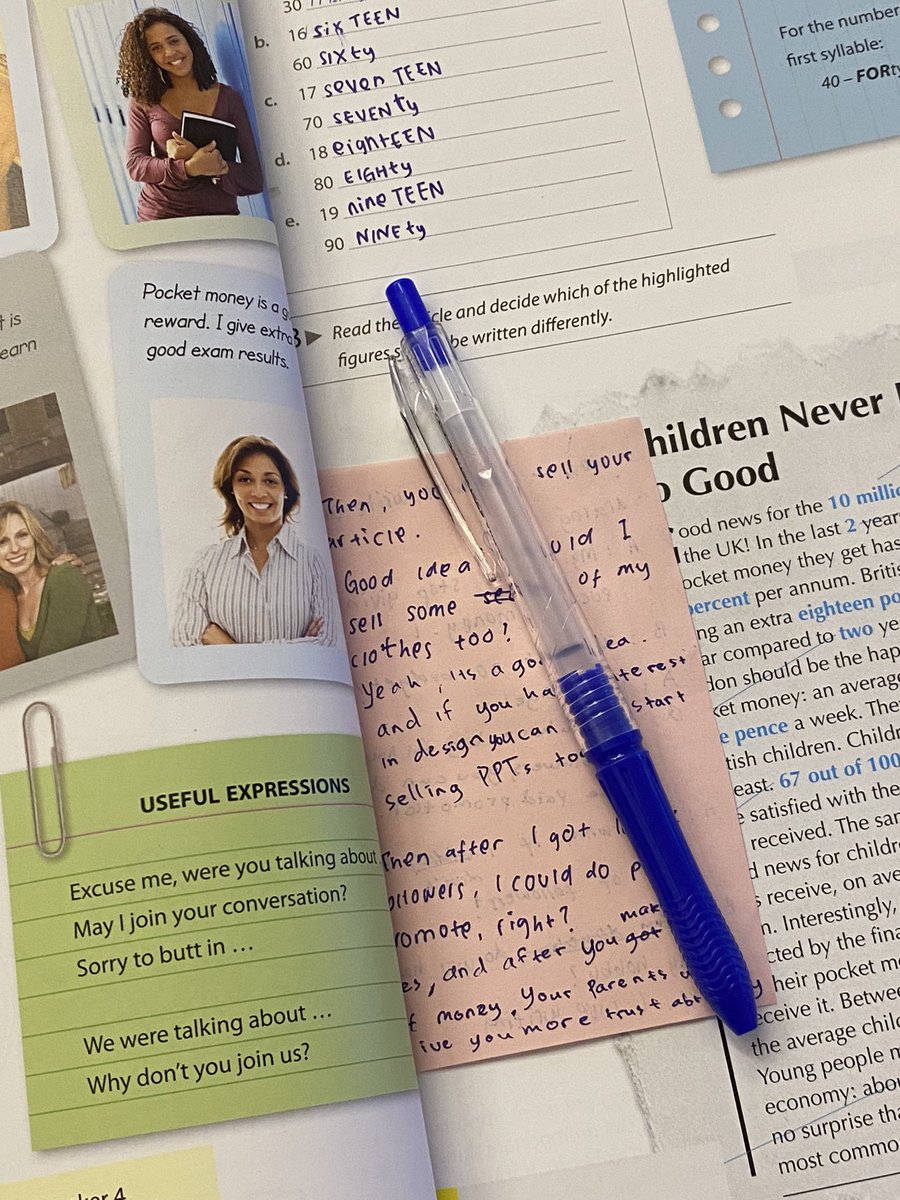 30
b. 16 six TEEN
60 SIXty
c. 17 seven TEEN
70 SEVENty
d. 18 eighTEEN
80 EIGHty
e. 19 nine TEEN
90 NINEty
For the number
first syllable:
40 – FORty
t is
earn
Pocket money is a g
reward. I give extra
good exam results.
3 ▶ Read the cle and decide which of the highlighted
figures s be written differently.
hildren Never
o Good
ood news for the 10 millio
the UK! In the last 2 year
ocket money they get has
percent per annum. Britis
ng an extra eighteen po
ar compared to two ye
don should be the hap
ket money: an average
e pence a week. The
tish children. Childr
east. 67 out of 100
e satisfied with the
received. The sam
d news for childre
s receive, on ave
n. Interestingly,
cted by the fina
y heir pocket mo
eceive it. Betwe
the average chil
Young people m
economy: abou
no surprise tha
most commo
Then, you sell your
article.
Good idea uld I
sell some of my
clothes too?
Yeah, its a go ea.
and if you ha terest
in design you can start
selling PPTs too
Then after I got
ollowers, I could do p
romote, right?
es, and after you got mak
f money, your parents
ive you more trust abt
USEFUL EXPRESSIONS
Excuse me, were you talking about
May I join your conversation?
Sorry to butt in …
We were talking about …
Why don't you join us?
ker 4